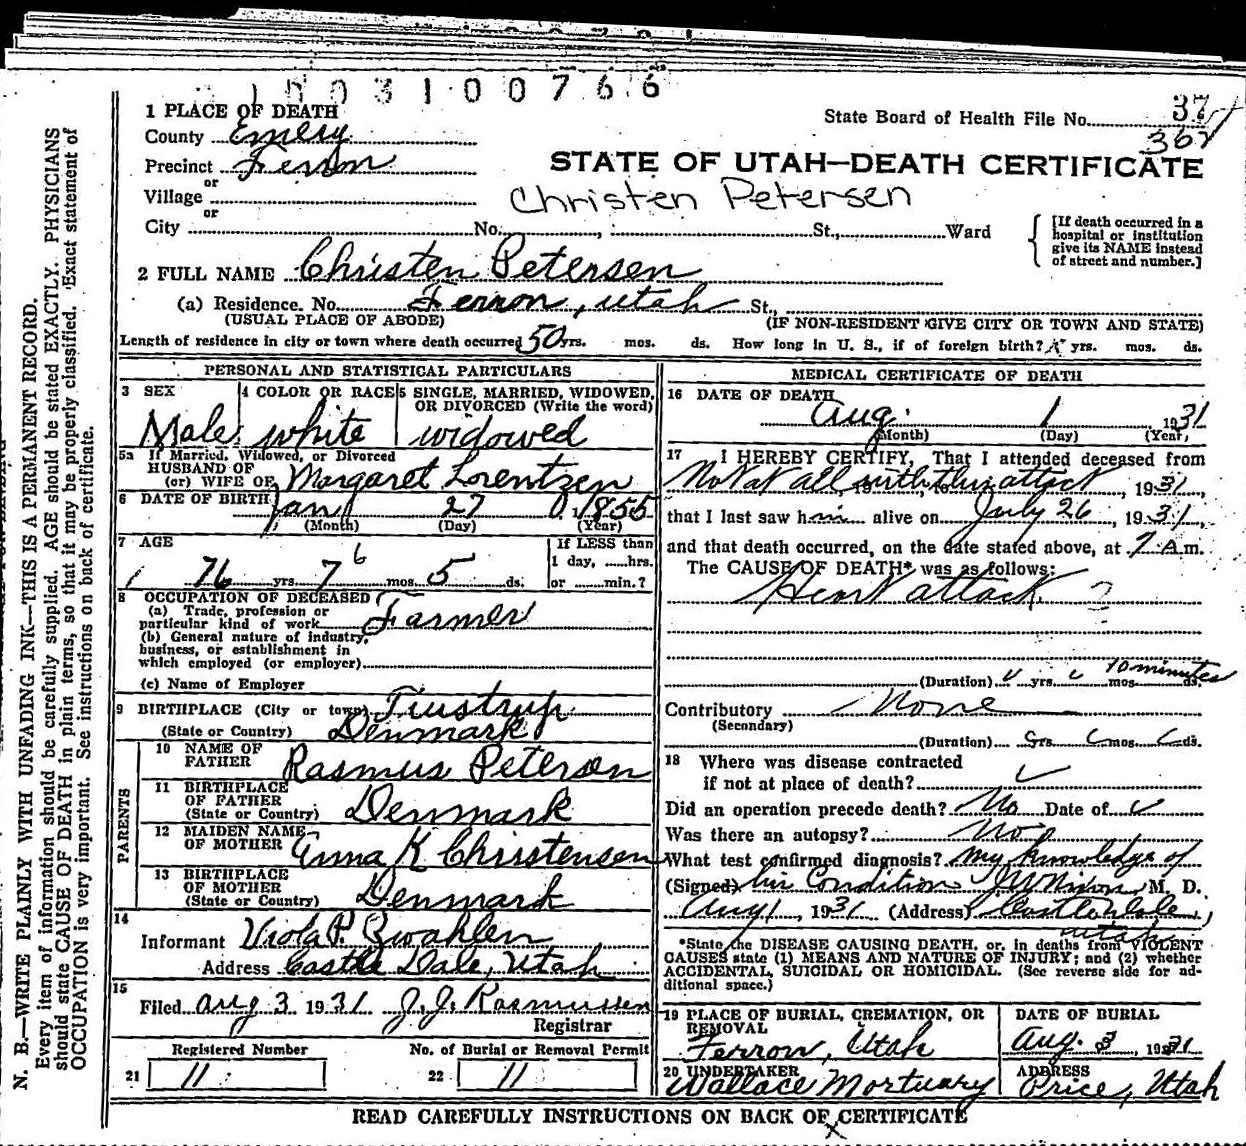 1003100766
1 PLACE OF DEATH
State Board of Health File No. 37
County Emery
362
Precinct Ferron
STATE OF UTAH—DEATH CERTIFICATE
or
Village
Christen Petersen
or
City No. , St., Ward
[If death occurred in a
hospital or institution
give its NAME instead
of street and number.]
2 FULL NAME Christen Petersen
(a) Residence. No. Ferron, Utah St.,
(USUAL PLACE OF ABODE) (IF NON-RESIDENT GIVE CITY OR TOWN AND STATE)
Length of residence in city or town where death occurred 50 yrs. mos. ds. How long in U. S., if of foreign birth? yrs. mos. ds.
PERSONAL AND STATISTICAL PARTICULARS
3 SEX 4 COLOR OR RACE 5 SINGLE, MARRIED, WIDOWED,
OR DIVORCED (Write the word)
Male white widowed
5a If Married, Widowed, or Divorced
HUSBAND OF
(or) WIFE OF Margaret Lorentzen
6 DATE OF BIRTH Jan 27 1855
(Month) (Day) (Year)
7 AGE If LESS than
1 day, ....hrs.
76 yrs. 7 6 mos. 5 ds. or ......min.?
8 OCCUPATION OF DECEASED
(a) Trade, profession or
particular kind of work Farmer
(b) General nature of industry,
business, or establishment in
which employed (or employer)
(c) Name of Employer
9 BIRTHPLACE (City or town) Tirstrup
(State or Country) Denmark
PARENTS
10 NAME OF
FATHER Rasmus Peterson
11 BIRTHPLACE
OF FATHER
(State or Country) Denmark
12 MAIDEN NAME
OF MOTHER Anna K Christensen
13 BIRTHPLACE
OF MOTHER
(State or Country) Denmark
14
Informant Viola P. Zwahlen
Address Castle Dale, Utah
15
Filed Aug 3 1931 J. J. Rasmussen
Registrar
Registered Number No. of Burial or Removal Permit
21 11 22 11
MEDICAL CERTIFICATE OF DEATH
16 DATE OF DEATH
Aug. 1 1931
(Month) (Day) (Year)
17 I HEREBY CERTIFY, That I attended deceased from
Not at all with this attack, 1931,
that I last saw him alive on July 26, 1931,
and that death occurred, on the date stated above, at 7 A.m.
The CAUSE OF DEATH* was as follows:
Heart attack ?
10 minutes
(Duration) yrs. mos. ds.
Contributory None
(Secondary)
(Duration) yrs. mos. ds.
18 Where was disease contracted
if not at place of death?
Did an operation precede death? No Date of
Was there an autopsy? No
What test confirmed diagnosis? My knowledge of
(Signed) his Condition J W Nixon, M. D.
Aug 1, 1931 (Address) Castle Dale,
Utah
*State the DISEASE CAUSING DEATH, or, in deaths from VIOLENT
CAUSES state (1) MEANS AND NATURE OF INJURY; and (2) whether
ACCIDENTAL, SUICIDAL OR HOMICIDAL. (See reverse side for ad-
ditional space.)
19 PLACE OF BURIAL, CREMATION, OR
REMOVAL
Ferron, Utah
DATE OF BURIAL
Aug. 3, 1931
20 UNDERTAKER
Wallace Mortuary
ADDRESS
Price, Utah
READ CAREFULLY INSTRUCTIONS ON BACK OF CERTIFICATE
N. B.—WRITE PLAINLY WITH UNFADING INK—THIS IS A PERMANENT RECORD.
Every item of information should be carefully supplied. AGE should be stated EXACTLY. PHYSICIANS
should state CAUSE OF DEATH in plain terms, so that it may be properly classified. Exact statement of
OCCUPATION is very important. See instructions on back of certificate.